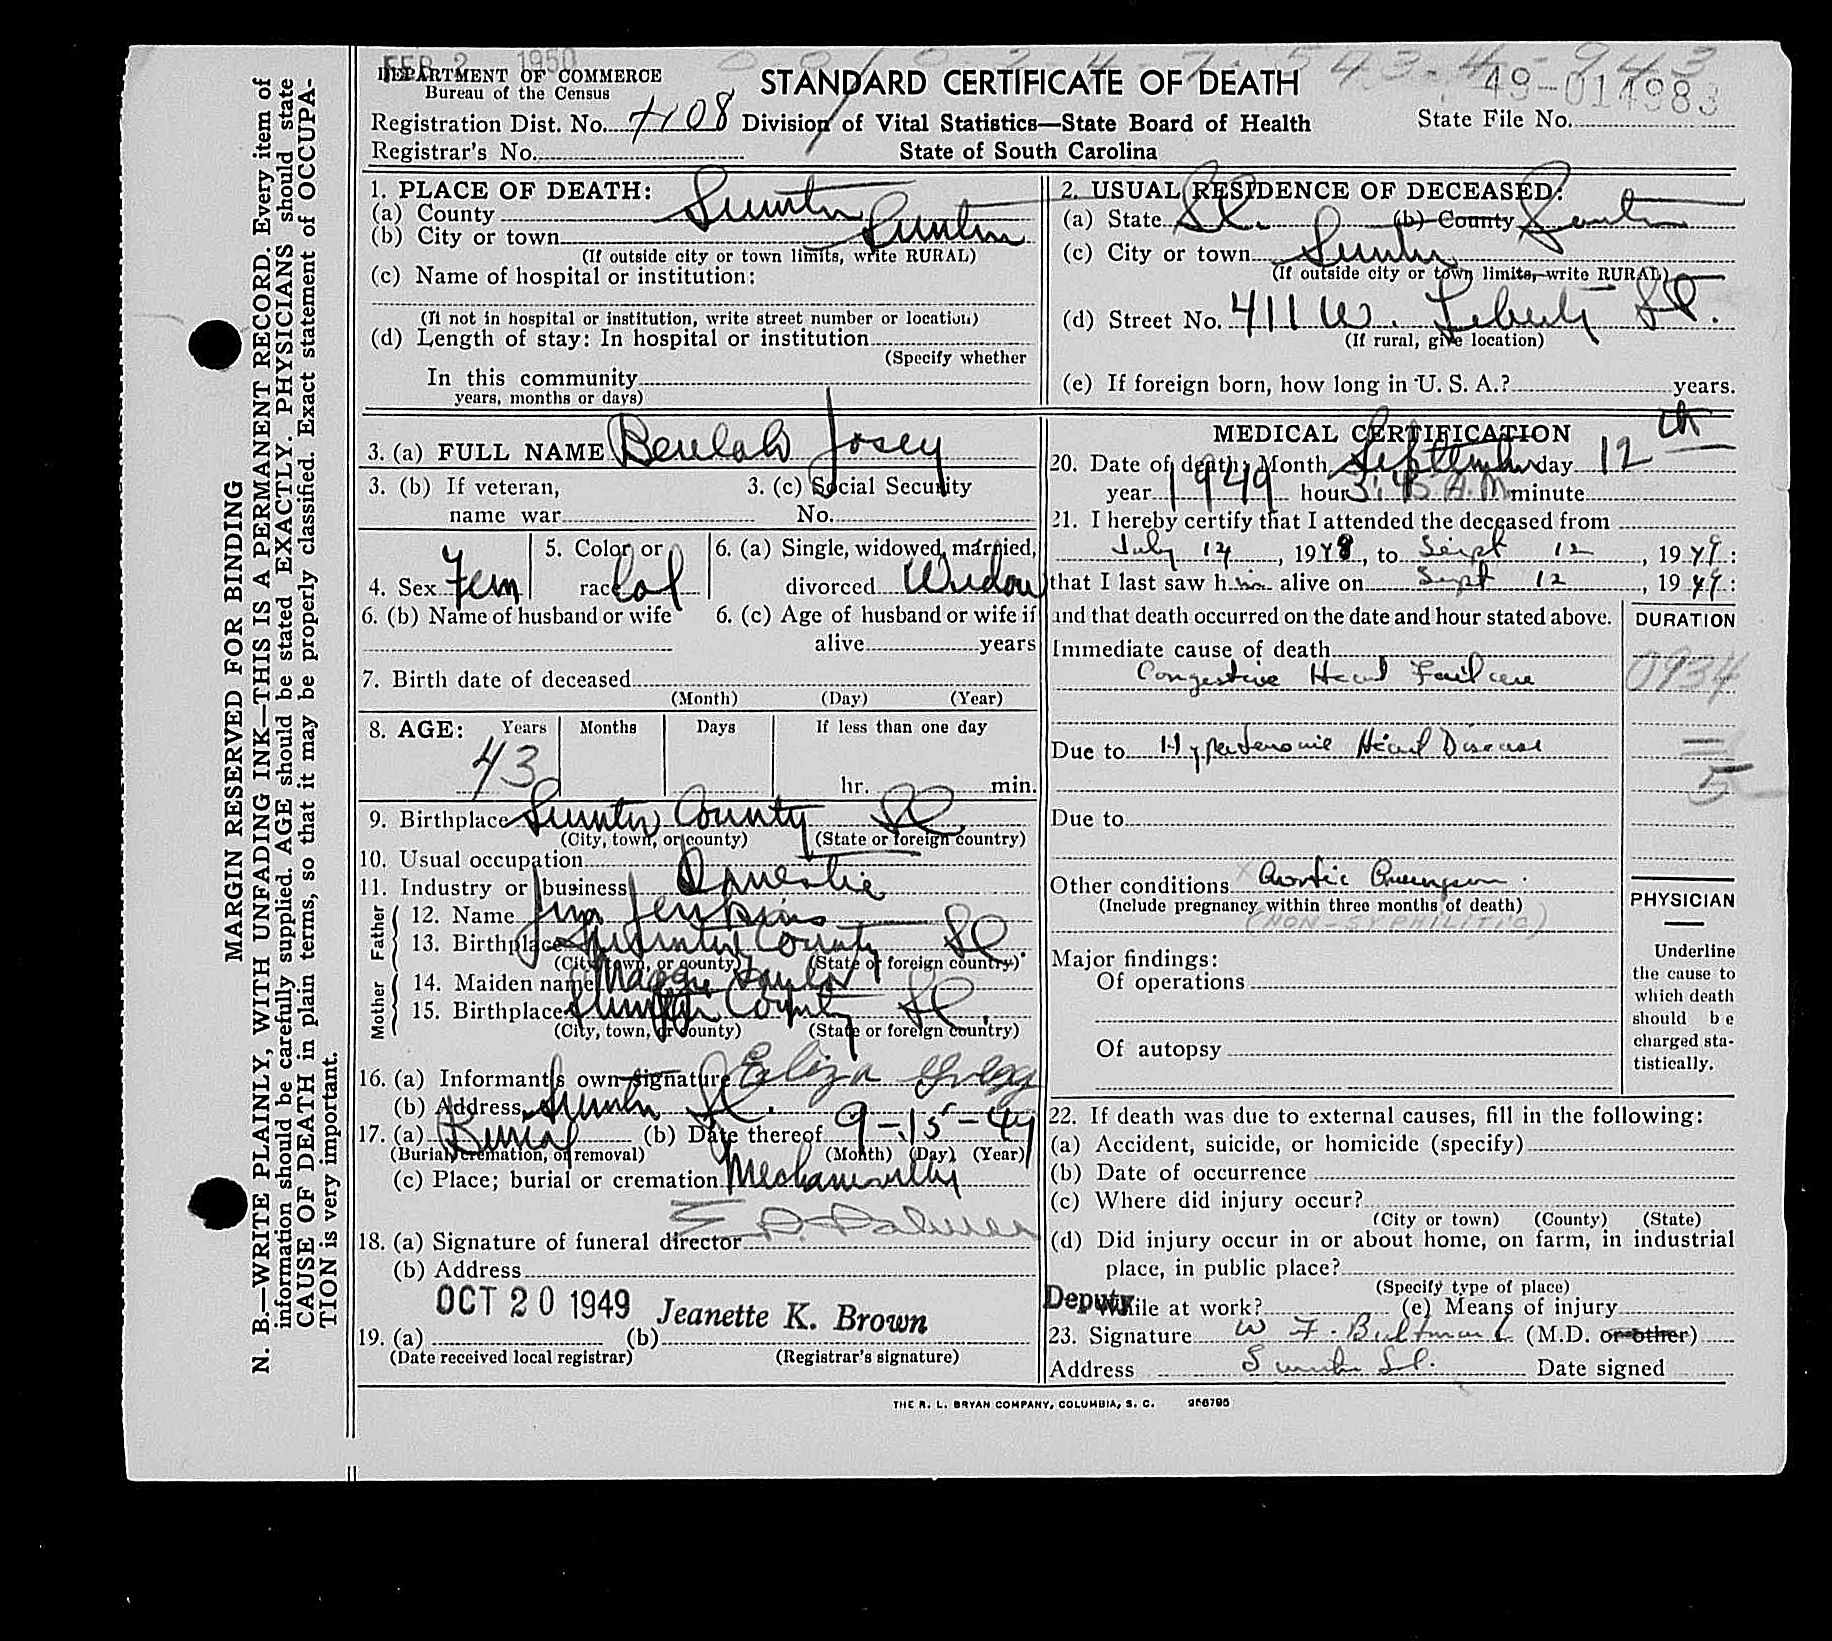 FEB 2 1950
DEPARTMENT OF COMMERCE
Bureau of the Census
STANDARD CERTIFICATE OF DEATH
49-014983
Registration Dist. No. 4108
Division of Vital Statistics—State Board of Health
State File No.
Registrar's No.
State of South Carolina
MARGIN RESERVED FOR BINDING
N. B.—WRITE PLAINLY, WITH UNFADING INK—THIS IS A PERMANENT RECORD. Every item of
information should be carefully supplied. AGE should be stated EXACTLY. PHYSICIANS should state
CAUSE OF DEATH in plain terms, so that it may be properly classified. Exact statement of OCCUPA-
TION is very important.
1. PLACE OF DEATH:
(a) County Sumter
(b) City or town Sumter
(If outside city or town limits, write RURAL)
(c) Name of hospital or institution:
(If not in hospital or institution, write street number or location)
(d) Length of stay: In hospital or institution
(Specify whether
In this community
years, months or days)
2. USUAL RESIDENCE OF DECEASED:
(a) State S.C. (b) County Sumter
(c) City or town Sumter
(If outside city or town limits, write RURAL)
(d) Street No. 411 W. Liberty St.
(If rural, give location)
(e) If foreign born, how long in U. S. A.? years.
3. (a) FULL NAME Beulah Josey
3. (b) If veteran,
name war
3. (c) Social Security
No.
4. Sex Fem
5. Color or
race Col
6. (a) Single, widowed, married,
divorced Widow
6. (b) Name of husband or wife
6. (c) Age of husband or wife if
alive years
7. Birth date of deceased
(Month) (Day) (Year)
8. AGE: Years Months Days If less than one day
43 hr. min.
9. Birthplace Sumter County SC
(City, town, or county) (State or foreign country)
10. Usual occupation
11. Industry or business Domestic
Father
12. Name Jim Jenkins
13. Birthplace Sumter County SC
(City, town, or county) (State or foreign country)
Mother
14. Maiden name Maggie
15. Birthplace Sumter County SC.
(City, town, or county) (State or foreign country)
16. (a) Informant's own signature Eliza Gregg
(b) Address Sumter SC.
17. (a) Burial (b) Date thereof 9-15-49
(Burial, cremation, or removal) (Month) (Day) (Year)
(c) Place; burial or cremation Mechanicsville
18. (a) Signature of funeral director E. P. Palmer
(b) Address
OCT 20 1949 Jeanette K. Brown
19. (a) (b)
(Date received local registrar) (Registrar's signature)
MEDICAL CERTIFICATION
20. Date of death: Month September day 12th
year 1949 hour A.M minute
21. I hereby certify that I attended the deceased from
July 14, 1948, to Sept 12, 1949:
that I last saw h im alive on Sept 12, 1949:
and that death occurred on the date and hour stated above.
DURATION
Immediate cause of death
Congestive Heart Failure
0934
Due to Hypertensive Heart Disease
5
Due to
Other conditions Aortic Aneurysm.
(Include pregnancy within three months of death)
(NON-SYPHILITIC)
Major findings:
Of operations
Of autopsy
PHYSICIAN
Underline
the cause to
which death
should be
charged sta-
tistically.
22. If death was due to external causes, fill in the following:
(a) Accident, suicide, or homicide (specify)
(b) Date of occurrence
(c) Where did injury occur?
(City or town) (County) (State)
(d) Did injury occur in or about home, on farm, in industrial
place, in public place?
(Specify type of place)
Deputy
While at work? (e) Means of injury
23. Signature W F. Bultman (M.D. or other)
Address Sumter S.C. Date signed
THE R. L. BRYAN COMPANY, COLUMBIA, S. C. 256795